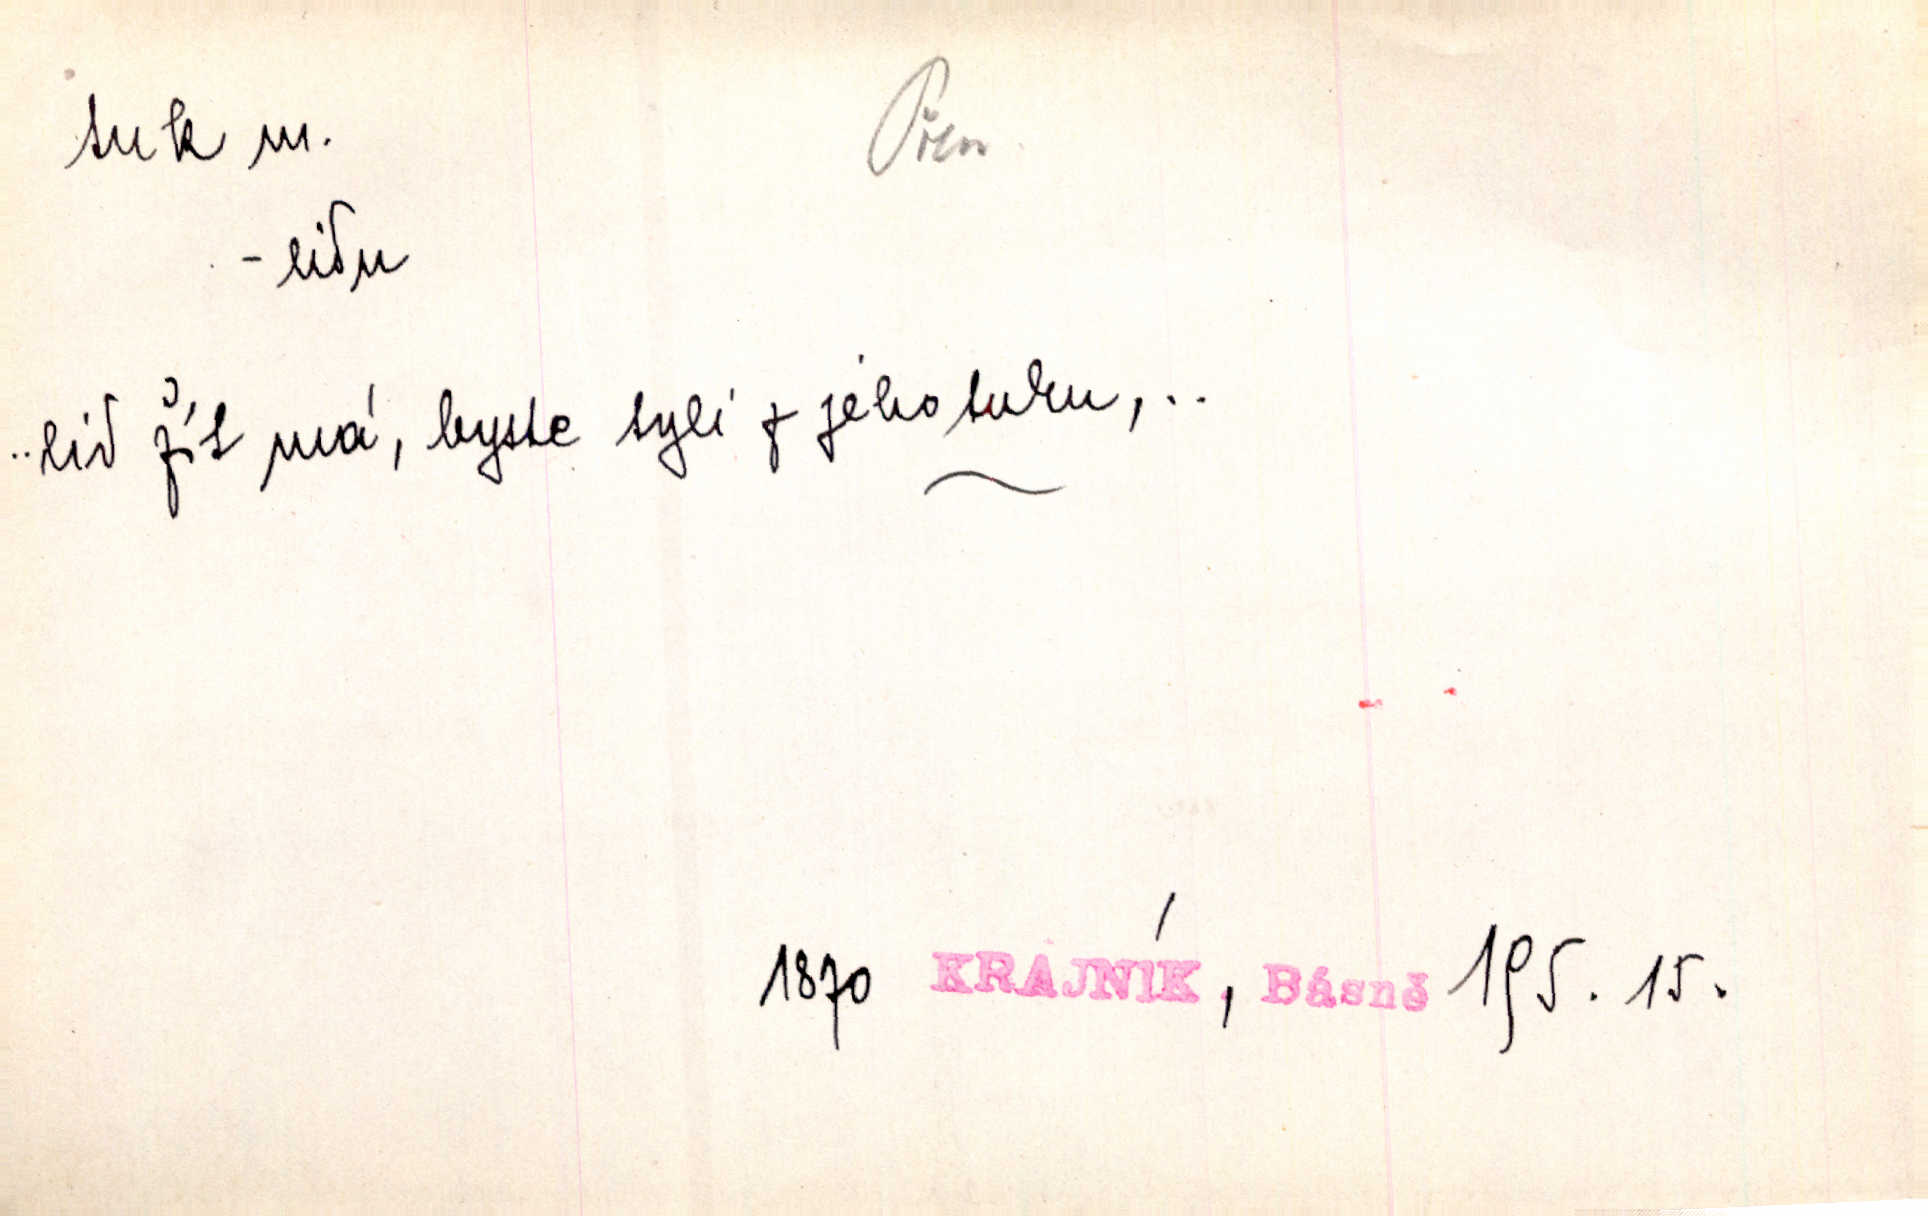 tuk m.
Přen
- lidu
..lid žít má, byste tyli z jeho tuku,..
1870 KRAJNÍK, Básně 195. 15.